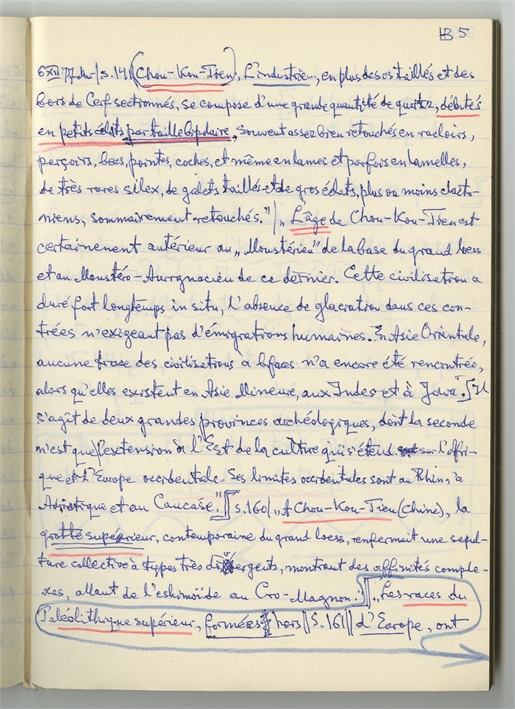 HB 5
6 XII 77. s. 141 (Chou-Kou-Tien), L'industrie.., en plus des os taillés et des
bois de Cerf sectionnés, se compose d'une grande quantité de quartz, débités
en petits éclats par taille bipolaire, souvent assez bien retouchés en racloirs,
perçoirs, becs, pointes, coches, et même en lames et parfois en lamelles,
de très rares silex, de galets taillés et de gros éclats, plus ou moins clacto-
niens, sommairement retouchés."|„ L'âge de Chou-Kou-Tien est
certainement antérieur au „Moustérien" de la base du grand loess
et au Moustéro-Aurignacien de ce dernier. Cette civilisation a
duré fort longtemps in situ, l'absence de glaciation dans ces con-
trées n'exigeant pas d'émigrations humaines. En Asie Orientale,
aucune trace des civilisations à bifaces n'a encore été rencontrée,
alors qu'elles existent en Asie Mineure, aux Indes et à Java. Il
s'agit de deux grandes provinces archéologiques, dont la seconde
n'est que l'extension à l'Est de la culture qui s'étend sur l'Afri-
que et l'Europe occidentale. Ses limites occidentales sont au Rhin, à
Adriatique et au Caucase." s. 160 „A Chou-Kou-Tien (Chine), la
grotte supérieur, contemporaine du grand loess, renfermait une sépul-
ture collective à types très divergents, montrant des affinités comple-
xes, allant de l'eskimoïde au Cro-Magnon." „Les races du
Paléolithique supérieur, formées hors || S. 161 || d'Europe, ont